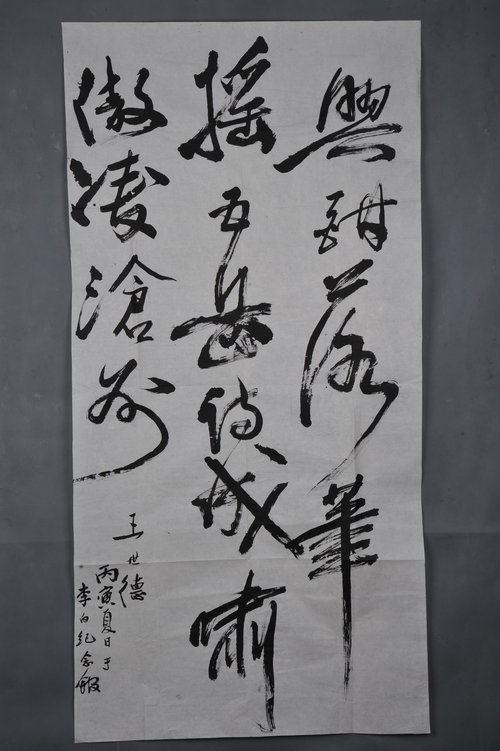 興酣落筆
搖五岳詩成嘯
傲凌滄州
王世德
丙寅夏日于
李白纪念館